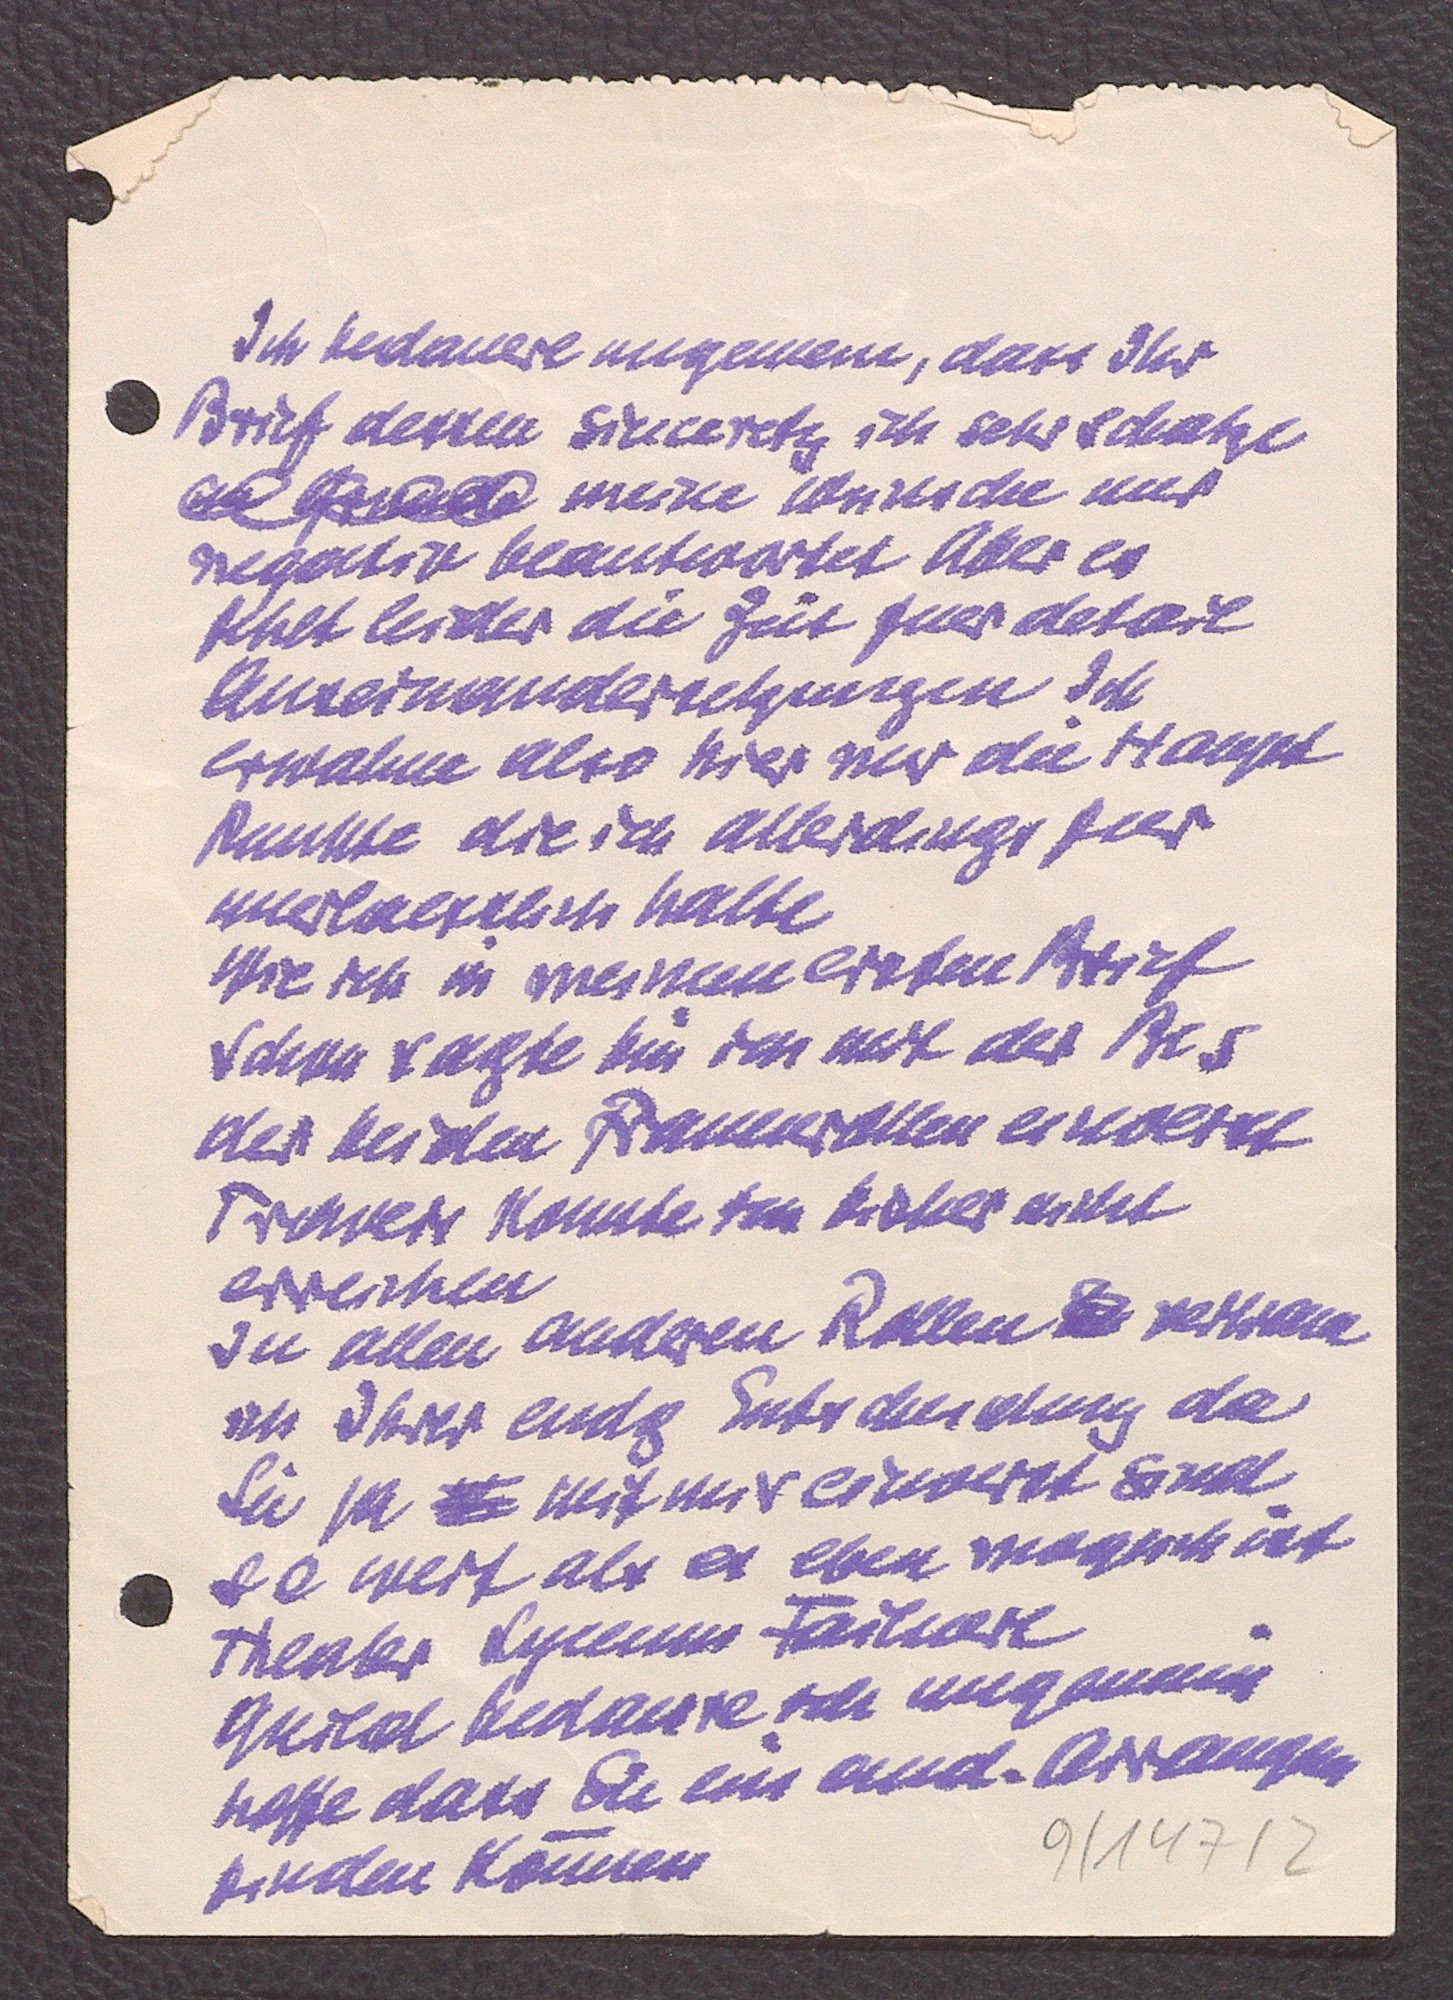 Ich bedauere ungemein, dass Ihr
Brief dessen sincerety ich sehr schatze
meine Wünsche nur
negativ beantwortet Aber es
fehlt leider die Zeit fuer detail
Auseinandersetzungen Ich
erwahne also hier nur die Haupt
Punkte die ich allerdings fuer
unerlaesslich halte
Wie ich in meinem ersten Brief
schon sagte bin ich mit der Bes
der beiden Frauenrollen einverst
konnte ich bisher nicht
erreichen
In allen anderen Rollen vertraue
ich Ihrer endg Entscheidung da
Sie ja mit mir einverst sind
so weit als es eben moglich ist
Theater Lyceum Failure
Guild bedaure ich ungemein
hoffe dass Sie ein and. Arrangem
finden können
9/147/2